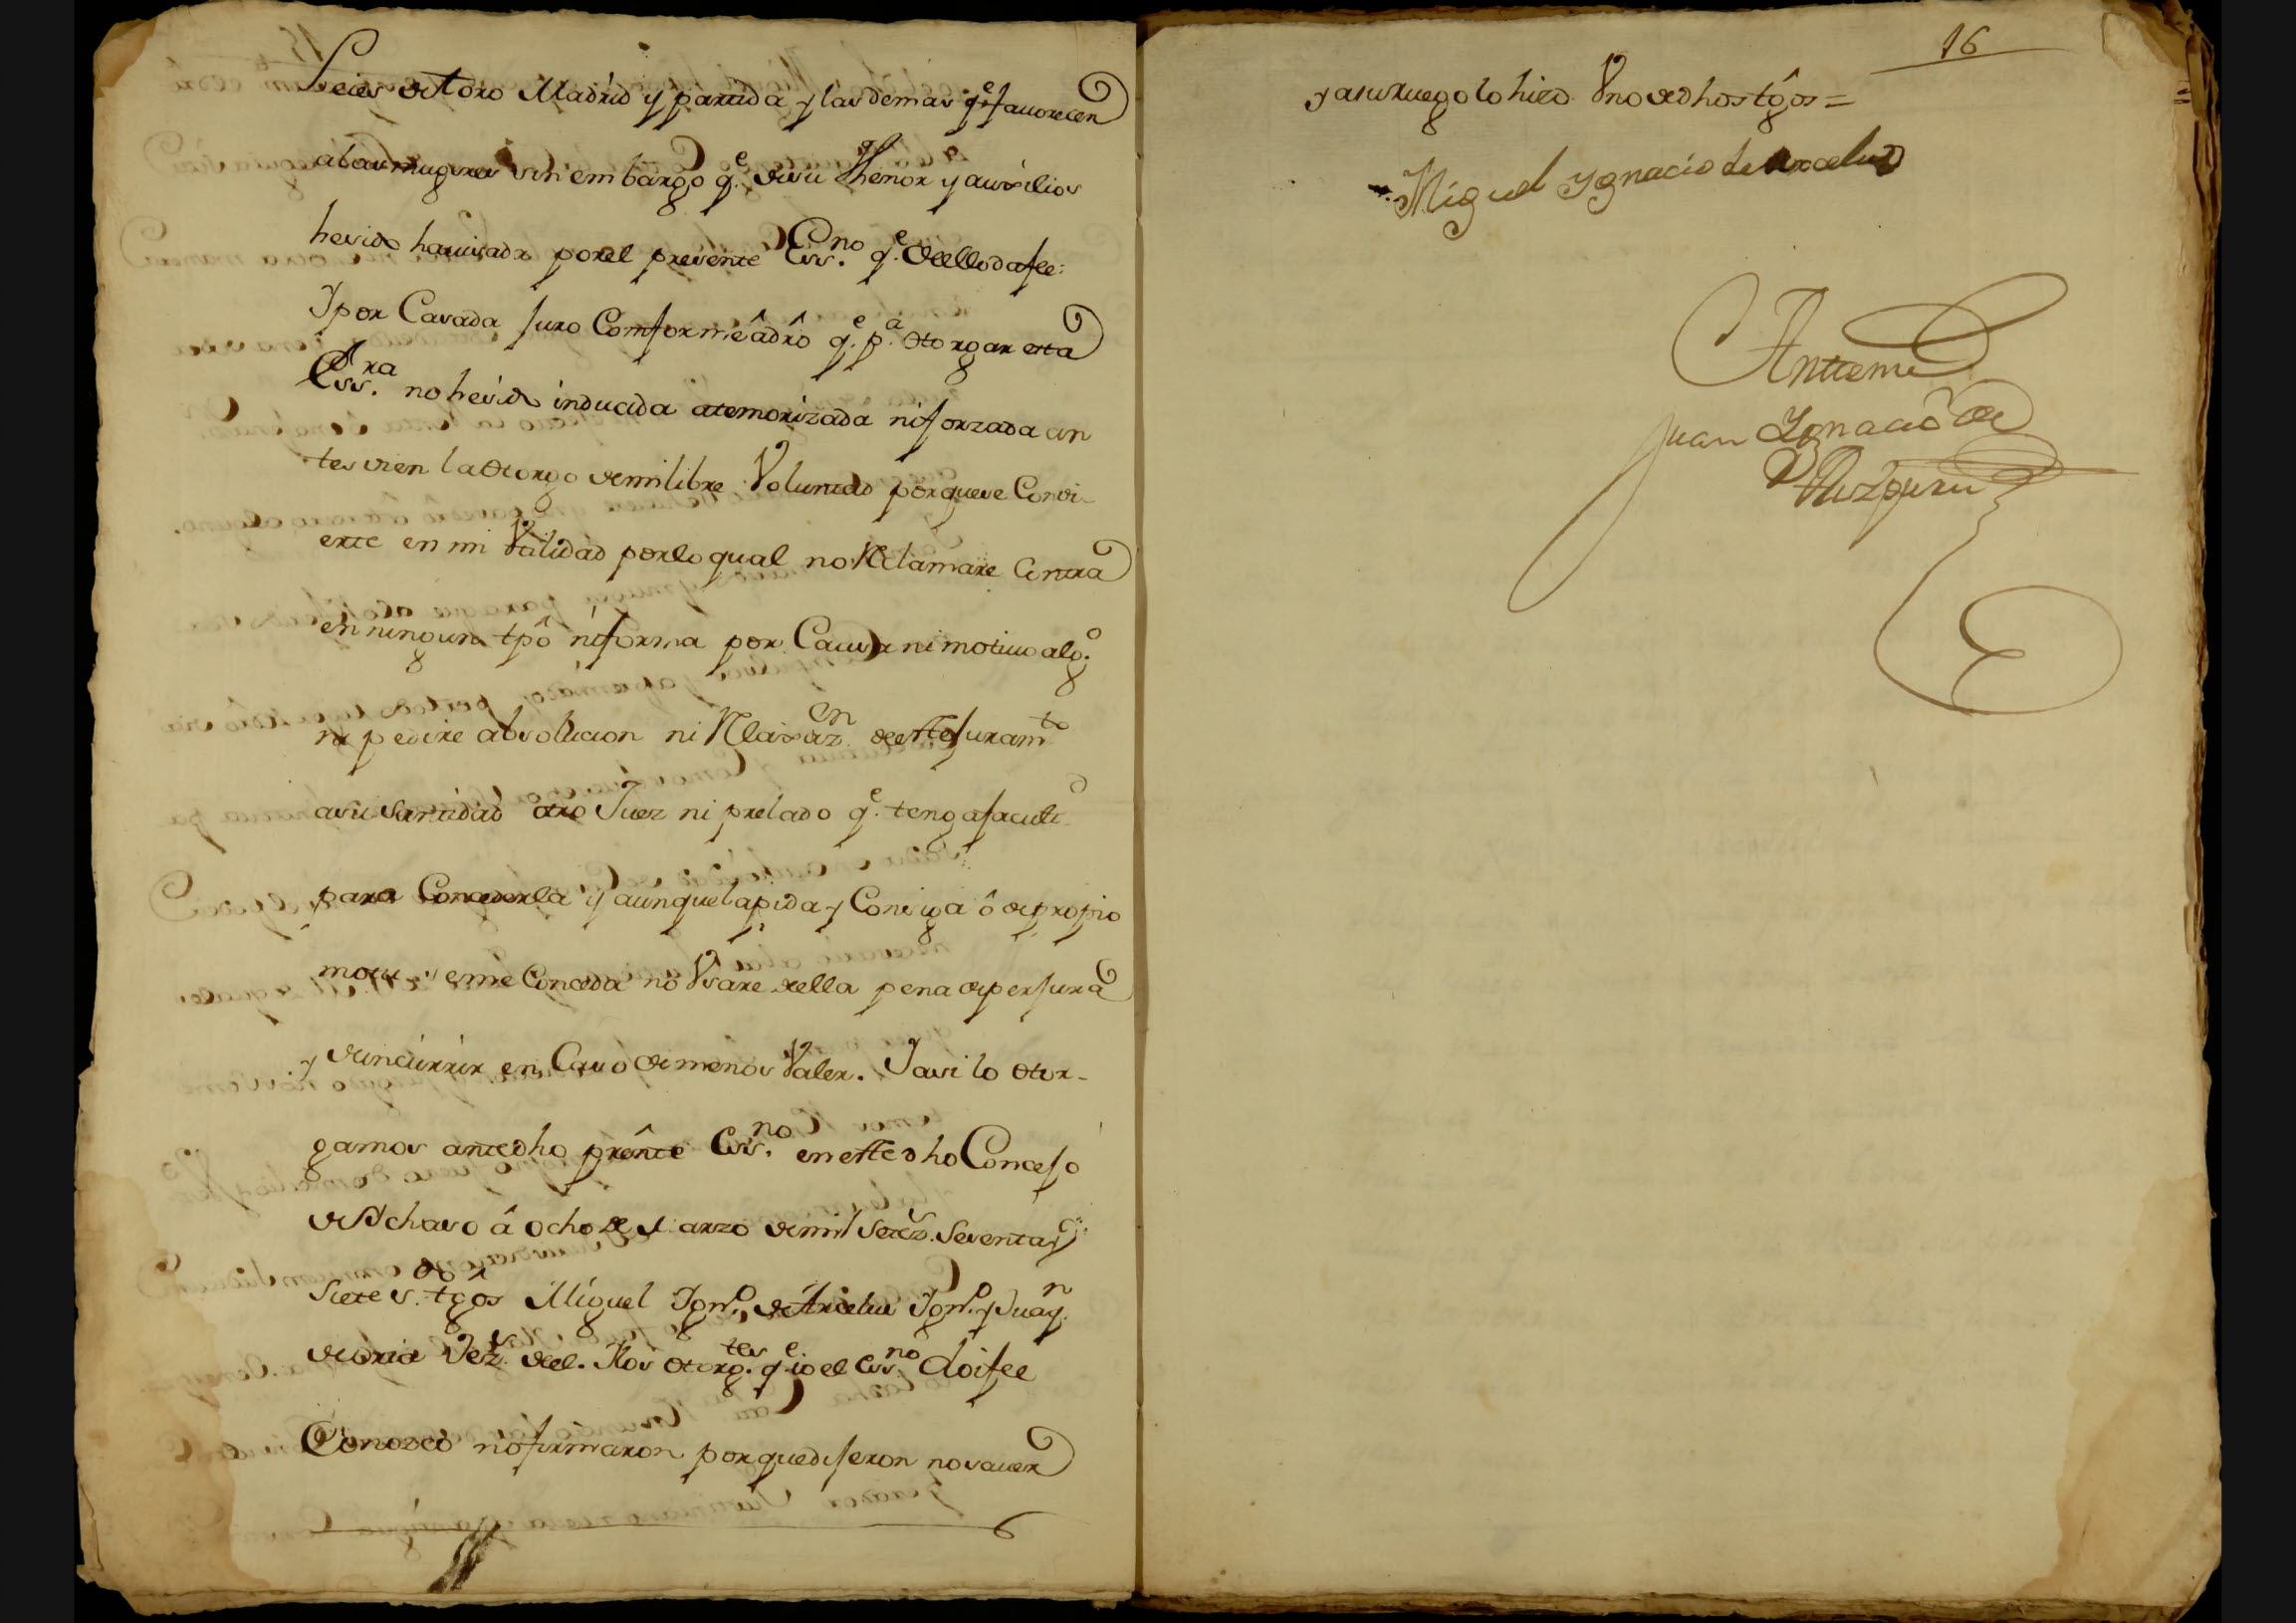 Leies de toro Madrid y partida y las demas q.e favorecen
alas mugeres sin embargo q.e desu thenor y ausilios
hesido havisada porel presente Ess.no q.e deello dafee:
Ypor Casada Juro Comforme âdrô q.e p.a otorgar esta
Ess.ra no hésido inducida atemorizada niforzada an
tesvien la Otorgo demilibre Voluntad porquese Convi-
erte en mi Utilidad porlo qual noReclamare Contra
en ningun tpô niforma por Causa nimotivo alg.o
ni pedire absolucion ni Relaxaz.on deeste Juram.to
asu santidad otro Juez ni prelado q.e tengafacult.d
para Concederla y aunquelapida y Consiga ô depropio
motu seme Conceda no Vsare della pena deperjura
y deincurrir en Caso demenos Valer. Yasi lo Otor-
gamos antedho prênte Ess.no eneste dho Concejo
de Achaso â ocho de Marzo demil setez.s Setenta y
Siete s.do tgôs Miguel Ign.o de Arcelus Ign.o y Juaq.n
de oria Vez.s deel. Xlos otorg.tes q.e io el Ess.no doifee
Conozco nofirmaron porquedijeron nosaver
16
yasuruego lo hizo Vno dedhos tgôs =
Miguel Ygnacio de Arcelus
Antemi
Juan Ygnacio de